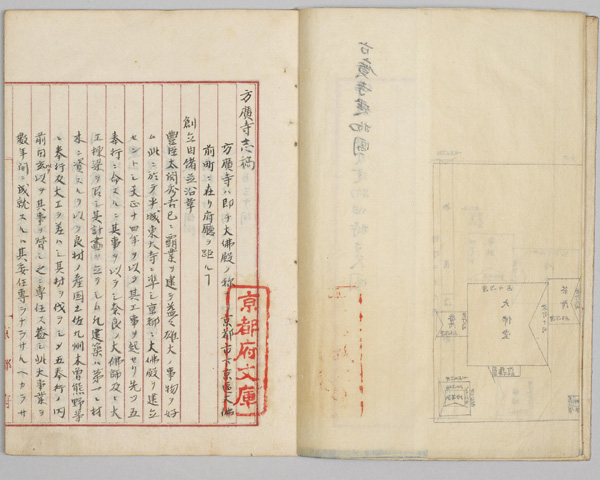 方廣寺志稿
方廣寺ハ即チ大佛殿ノ稱 京都市下京區大佛
前町ニ在リ府廳ヲ距ル丁
創立由緒並沿革
豐臣太閤秀吉已ニ覇業ヲ建テ益々雄大ノ事物ヲ好
ム此ニ於テ平城東大寺ニ準シ京都ニ大佛殿ヲ建立
セントシ天正十四年ヲ以テ其工事ヲ起セリ先ツ五
奉行ニ命スルニ其事ヲ以テシ奈良ノ大佛師及ヒ大
工棟梁ヲ召シ其計畫ヲ立テシム凡建築ノ第一ハ材
木ニ資スルヲ以テ良材ノ產国土佐九州木曽熊野等
ニ奉行及大工ヲ差ハシ其材ヲ伐ラシメ五奉行ノ内
前田玄以ヲ其事ヲ督シ之ニ専任ス蓋シ此大事業ヲ
數年間ニ成就スルハ其委任専ラナラサルヘカラサ
京都府
京都府文庫
大佛堂